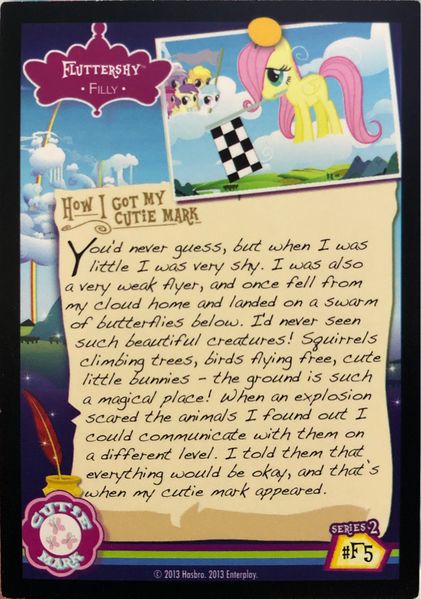 FLUTTERSHY™
• FILLY •
HOW I GOT MY
CUTIE MARK
You'd never guess, but when I was
little I was very shy. I was also
a very weak flyer, and once fell from
my cloud home and landed on a swarm
of butterflies below. I'd never seen
such beautiful creatures! Squirrels
climbing trees, birds flying free, cute
little bunnies - the ground is such
a magical place! When an explosion
scared the animals I found out I
could communicate with them on
a different level. I told them that
everything would be okay, and that's
when my cutie mark appeared.
CUTIE
MARK
SERIES•2
#F5
© 2013 Hasbro. 2013 Enterplay.